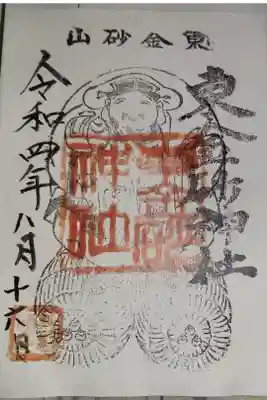 東金砂山
東金砂神社
神社
令和四年八月十六日